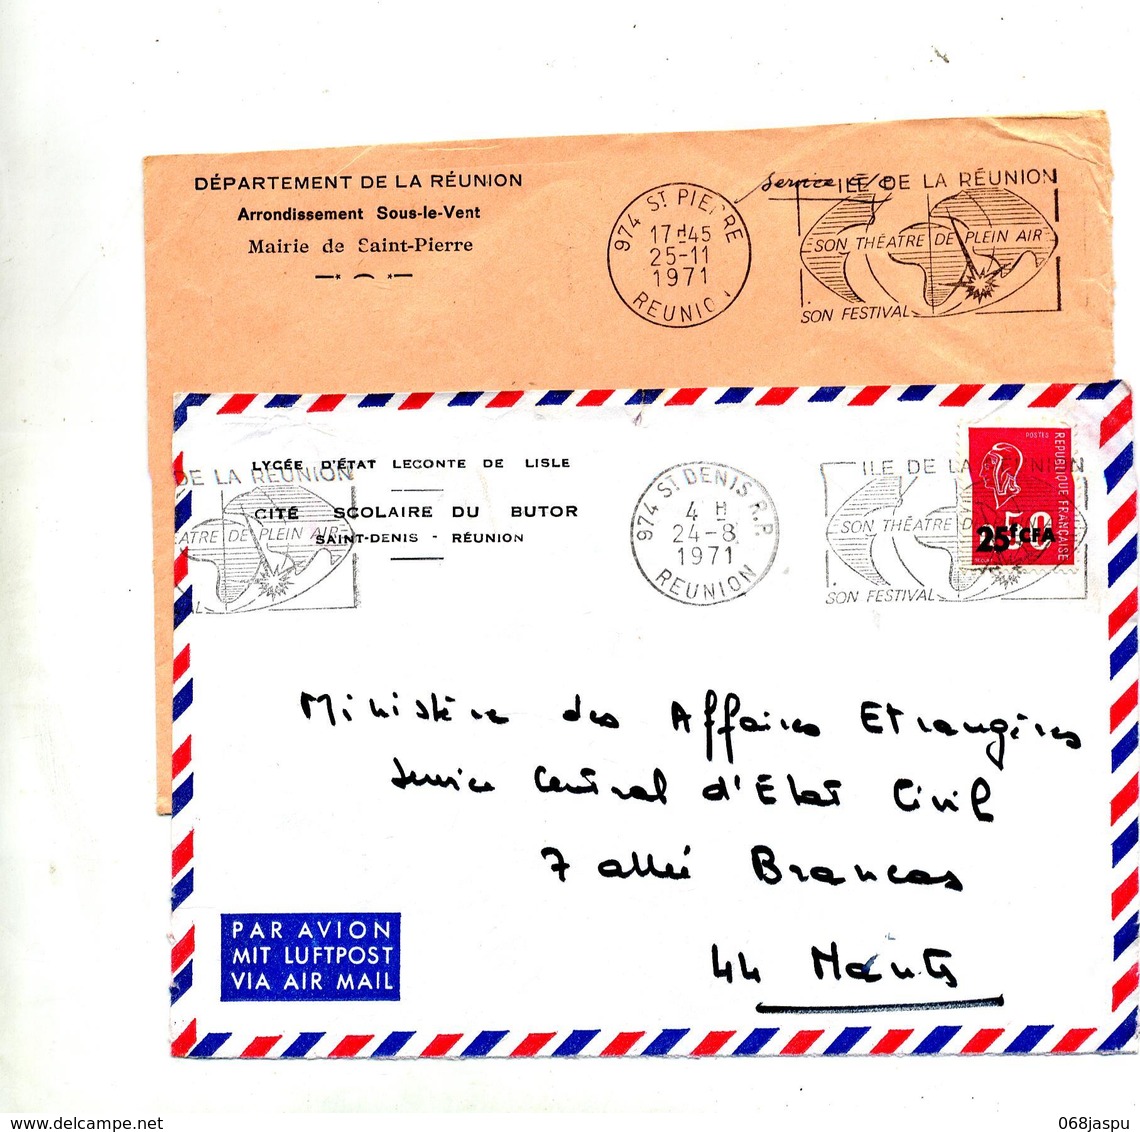 DÉPARTEMENT DE LA RÉUNION
Arrondissement Sous-le-Vent
Mairie de Saint-Pierre
974 ST PIERRE
17 H 45
25-11
1971
REUNION
service
ILE DE LA RÉUNION
SON THÉATRE DE PLEIN AIR
SON FESTIVAL
DE LA RÉUNION
LYCÉE D'ÉTAT LECONTE DE LISLE
CITÉ SCOLAIRE DU BUTOR
SAINT-DENIS - RÉUNION
ATRE DE PLEIN AIR
VAL
974 ST DENIS R.P.
4 H
24-8
1971
REUNION
ILE DE LA REUNION
SON THÉATRE D
SON FESTIVAL
POSTES
REPUBLIQUE FRANÇAISE
0.50
25F CFA
Ministère des Affaires Etrangères
Service Central d'Etat Civil
7 allée Brancas
44 Nantes
PAR AVION
MIT LUFTPOST
VIA AIR MAIL
068jaspu